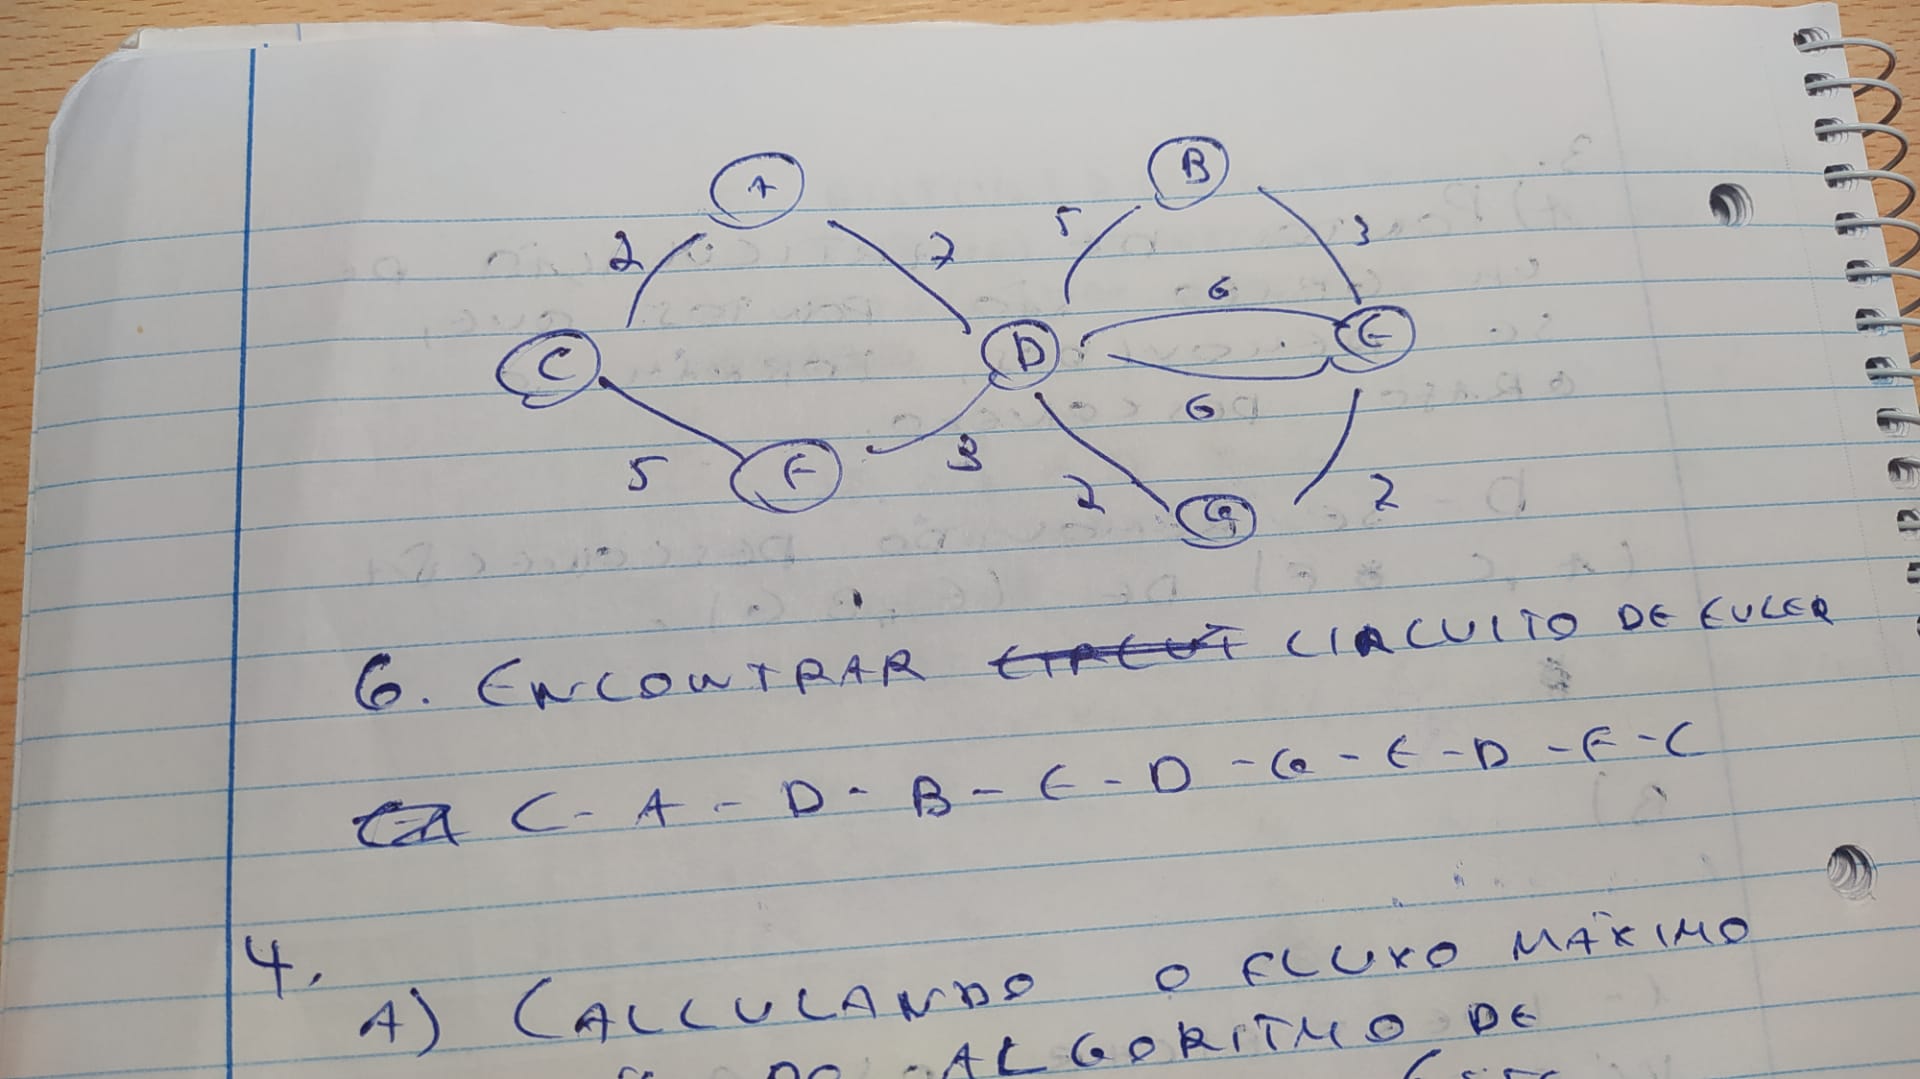 A
B
2
7
5
3
6
C
D
E
6
5
F
3
2
G
2
6. ENCONTRAR CIRCUITO DE EULER
C - A - D - B - E - D - G - E - D - F - C
4.
A) CALCULANDO O FLUXO MÁXIMO
DO ALGORITMO DE